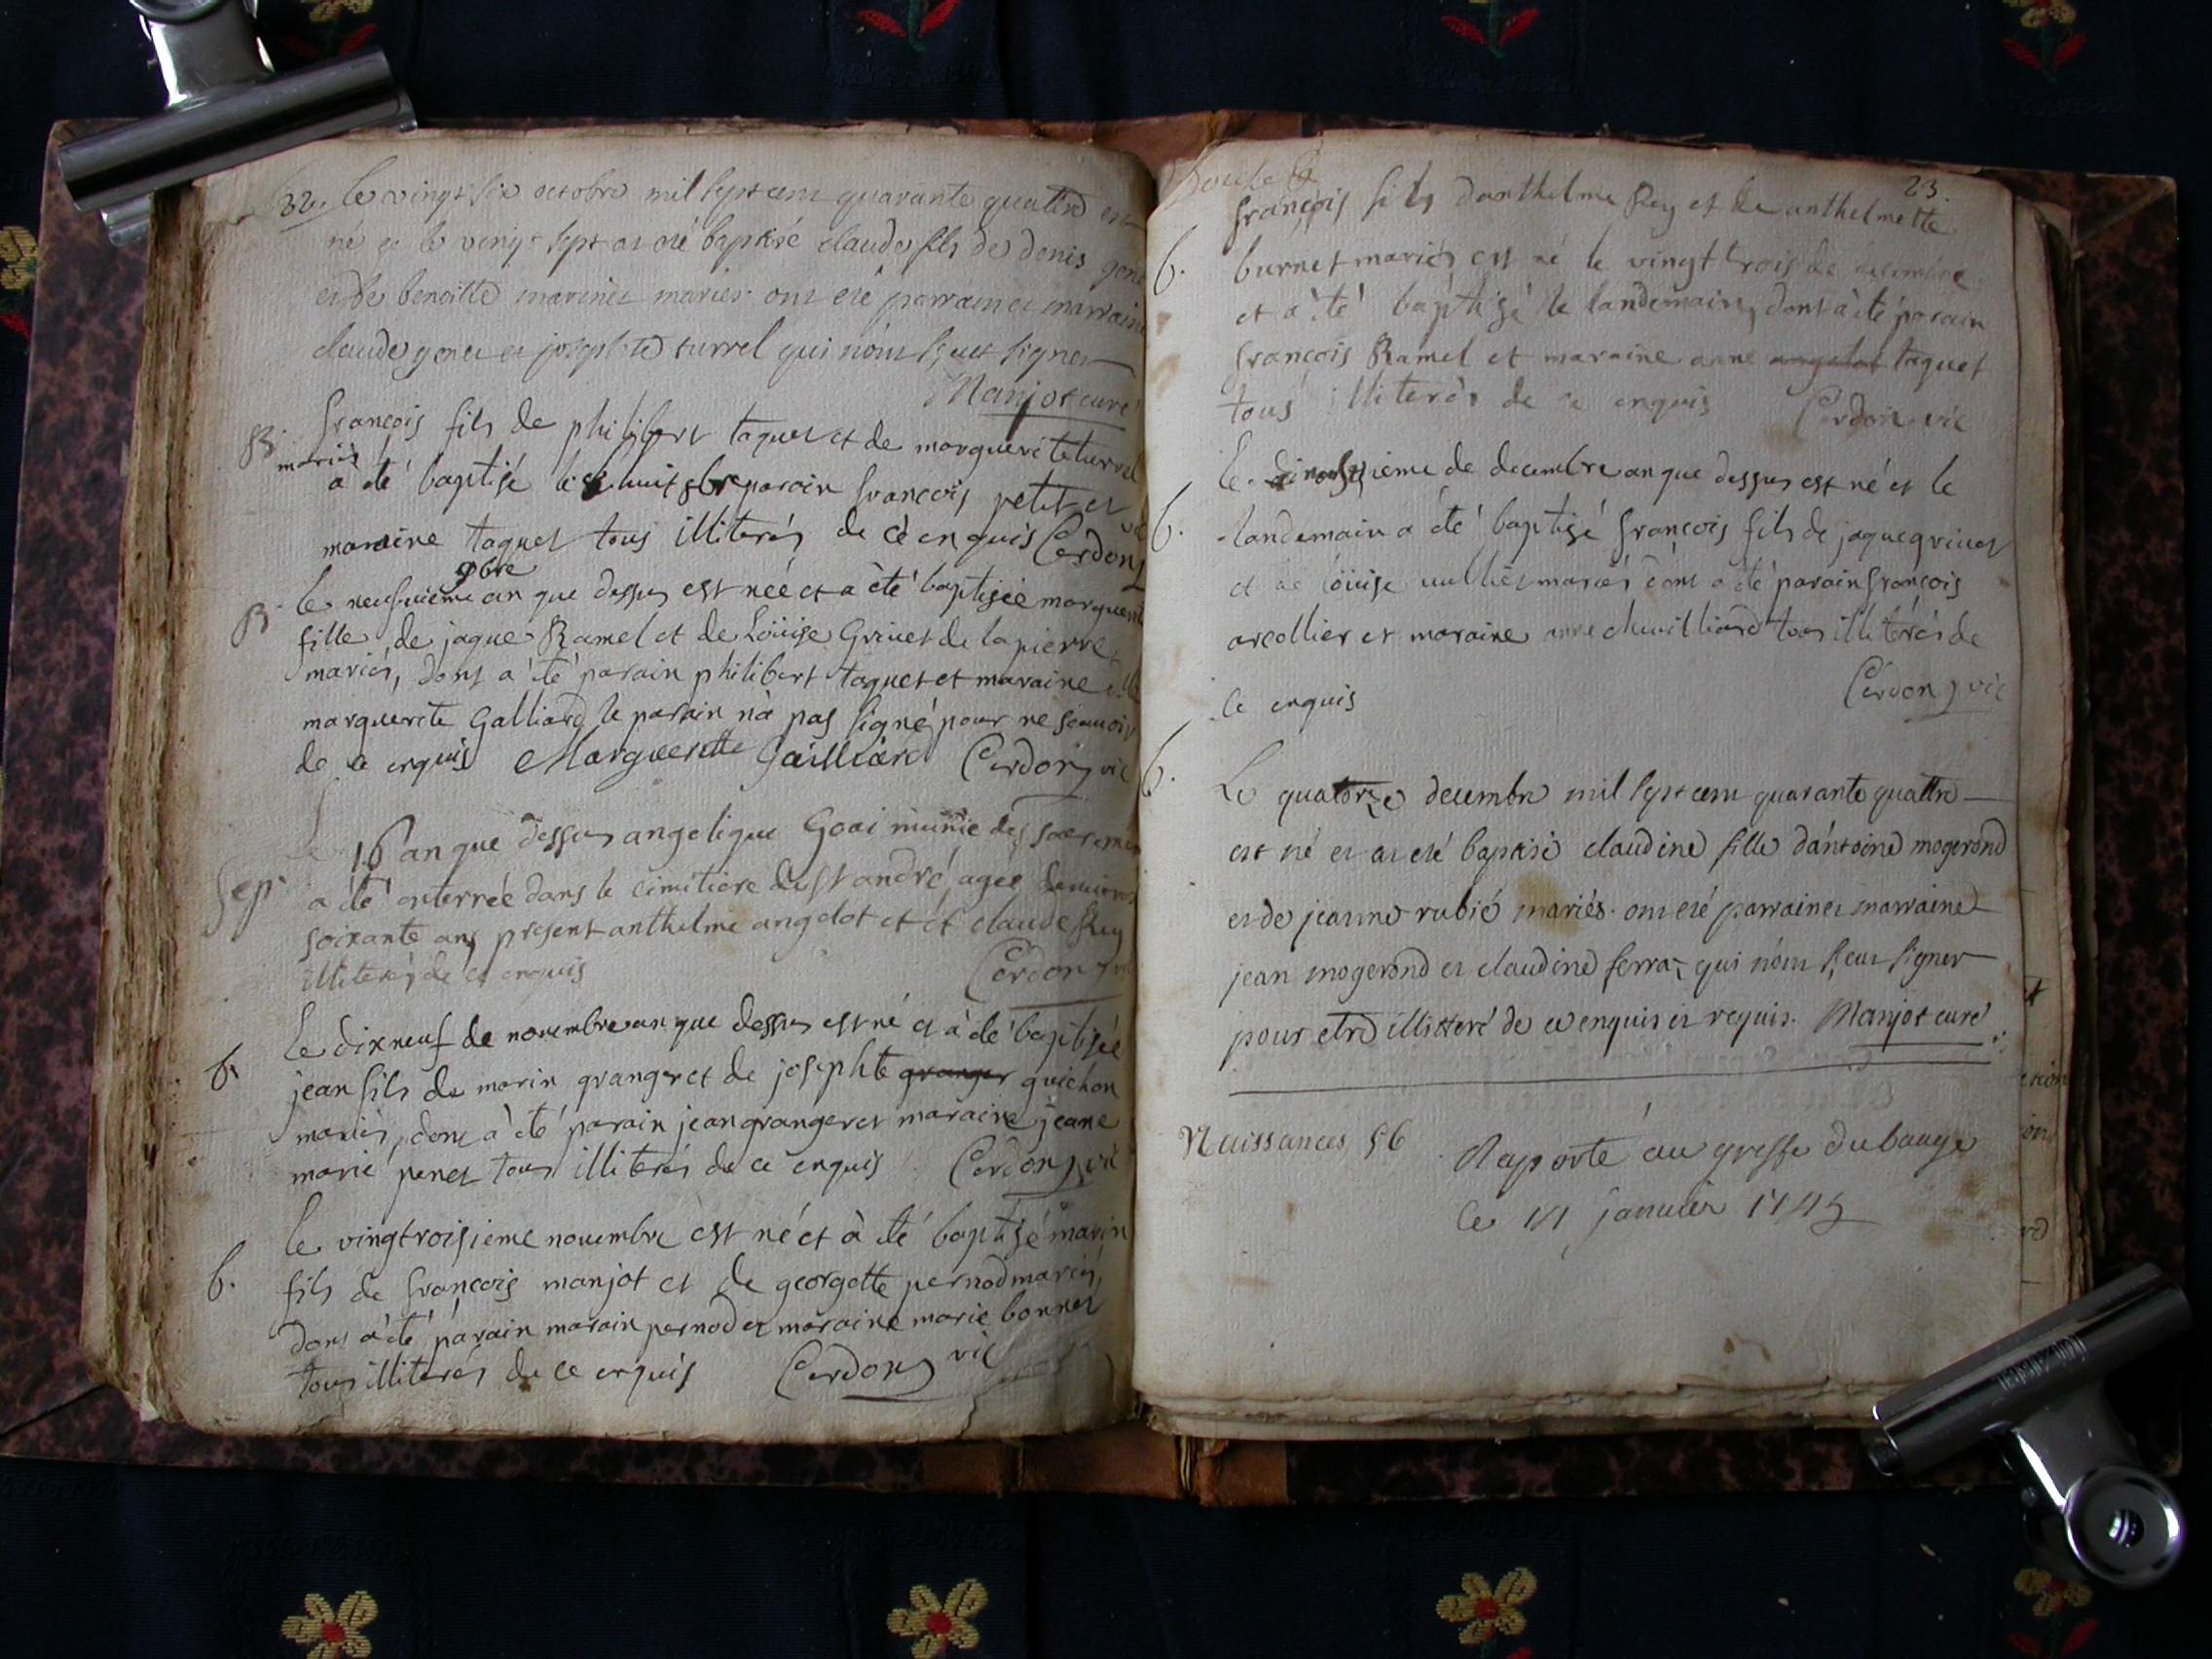 22. le vingt six octobre mil sept cent quarante quattre est
né et le vingt sept at eté baptisé claude fils de denis
et de benoitte marinet mariés. ont eté parrain et marraine
claude gonet et josephte turrel qui n'ont sçut signer
Manjot curé
B. françois fils de philibert taquet et de marguerite turrel
mariés
a été baptisé le huit 9bre parain françois petit et
maraine taquet tous illiterés de ce enquis Cerdon
9bre
B. le neufvieme an que dessus est née et a èté baptisée marguerite
fille de jaque Ramel et de Loüise Grivet de la pierre
mariés, dont a été parain philibert taquet et maraine
marguerite Galliard le parain n'a pas signé pour ne scauoir
de ce enquis Marguerette Gailliard Cerdon vic
Sep. Le 16 an que dessus angelique Goai munie des sacremens
a été enterrée dans le cimitière de St andré, agée denviron
soixante ans present anthelme angelot et claude Rey
illiterés de ce enquis Cerdon
b. Le dixneuf de novembre an que dessus est né et à été baptisée
jean fils de marin granger et de josephte granger guichon
mariés, dont à été parain jean granger et maraine jeane
marie penet tous illiterés de ce enquis Cerdon vic
le vingtroisieme nouembre est né et à été baptisé marin
b. fils de françois manjot et de georgette pernod mariés,
dont a été parain marain pernod et maraine marie bonnet
tous illiterés de ce enquis Cerdon vic
23.
françois fils danthelme Rey et de anthelmette
b. burnet mariés est né le vingt trois de
et a été baptisé le landemain, dont à été parain
françois Ramel et maraine anne angelot taquet
tous illiterés de ce enquis Cerdon vic
le de decembre an que dessus est né et le
b. landemain a été baptisé françois fils de jaque grivet
et de loüise mariés dont a été parain françois
arcollier et maraine anne tous illiterés de
ce enquis Cerdon vic
b. Le quatorze decembre mil sept cent quarante quattre
est né et at eté baptisé claudine fille d'antoine mogerond
et de jeanne rubié mariés. ont eté parrain et marraine
jean mogerond et claudine ferraz qui n'ont sçeut signer
pour etre illitteré de ce enquis et requis. Manjot curé
Naissances 56 Raporté au greffe du baage
le 11 januier 1745